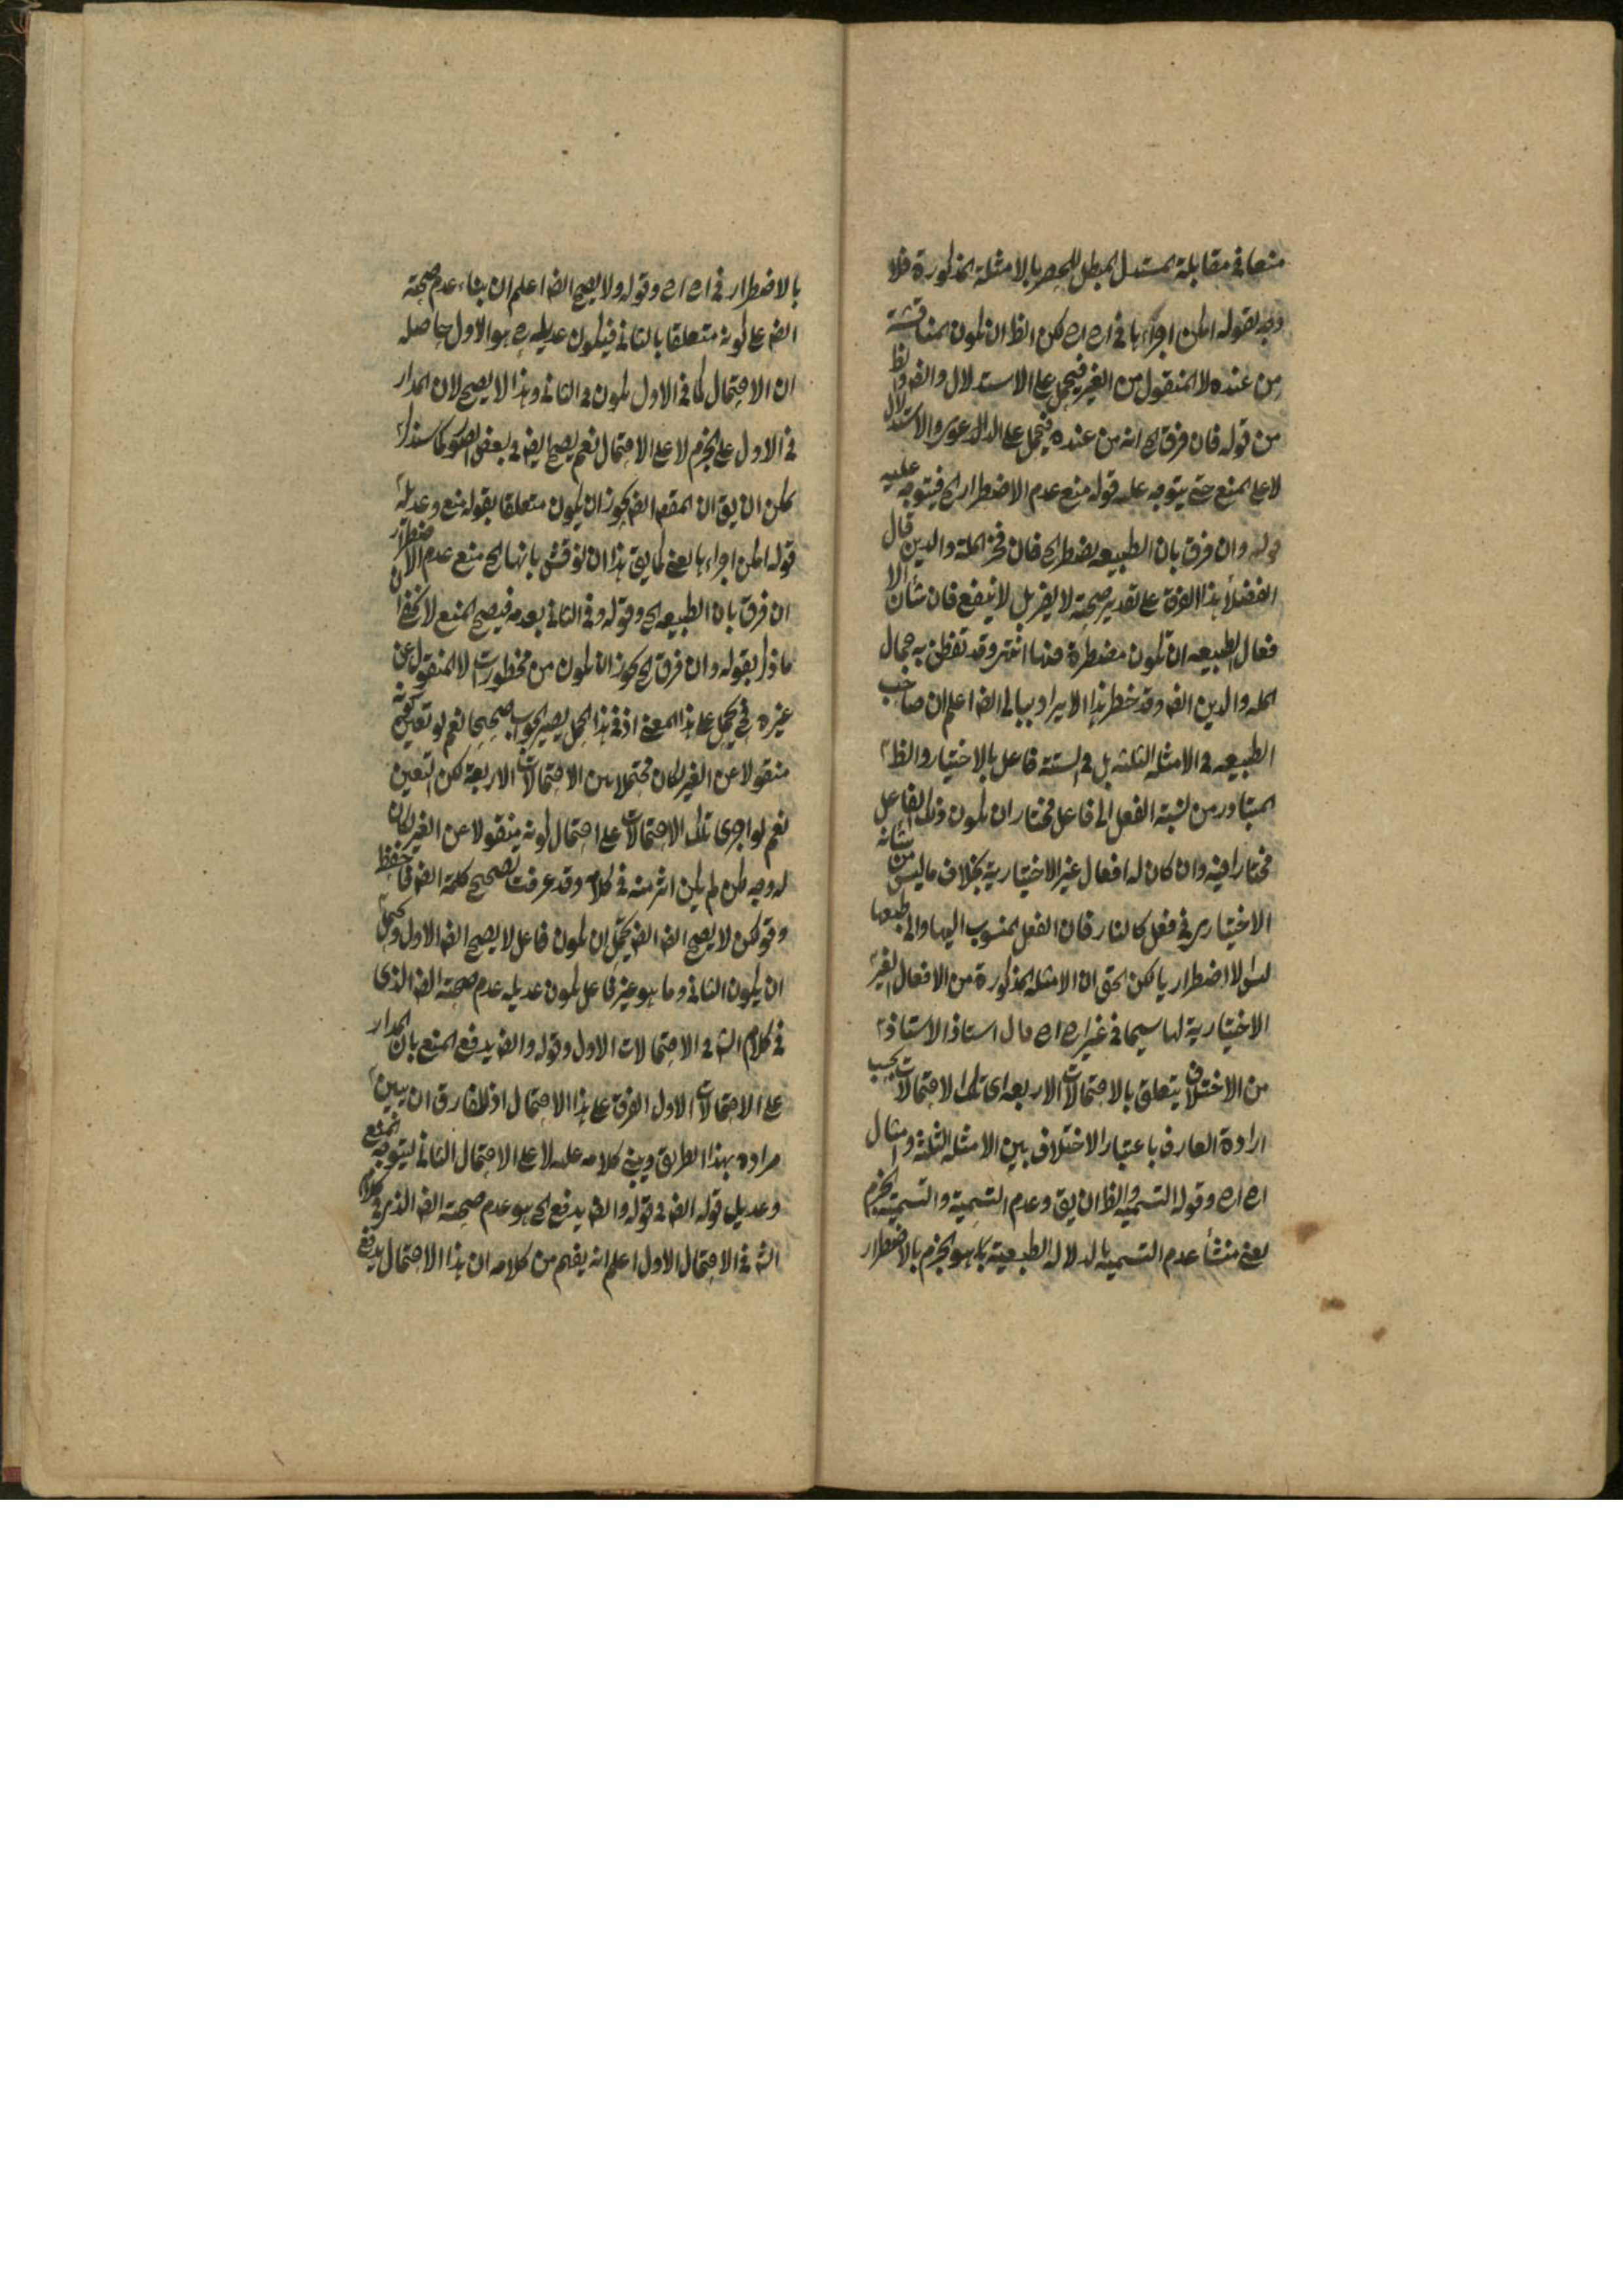 منعا فى مقابلة المستدل المبطل للحصر بالامثلة المذكورة فلا
وجه لقوله امكن اجراءها فى اح اح لكن الظ ان يكون المناقشة
من عنده لا المنقول من الغير فيحمل على الاستدلال وايضا الظ
من قوله فان فرق الخ انه من عنده فيحمل على الدعوى والاستدلال
لا على المنع حتى يتوجه عليه قوله منع عدم الاضطرار الخ فيتوجه عليه
قوله وان فرق بان الطبيعه يضطر الخ فان فخر الملة والدين قال
الفضلا هذا الفرق على تقدير صحته لا يضر بل لا ينفع فان شأن الا
فعال الطبيعه ان تكون مضطرة منها انتهى وقد تفطن به جمال
المله والدين ايضا وقد خطر هذا الايراد ببالى ايضا اعلم ان صاحب
الطبيعه فى الامثله الثلثه بل فى الستة فاعل بالاختيار والظ
المتبادر من نسبة الفعل الى فاعل مختار ان يكون ذلك الفاعل
مختارا فيه وان كان له افعال غير الاختيارية بخلاف ما ليس من شأنه
الاختيارى فى فعل كالنار فان الفعل المنسوب اليها والى طبعها
ليس الا اضطراريا لكن الحق ان الامثله المذكورة من الافعال الغير
الاختيارية لها سيما فى غير اح اح قال استاذ الاستاذ
من الاختلاف يتعلق بالاحتمالات الاربعه اى تلك الاحتمالات بحسب
ارادة العارف باعتبار الاختلاف بين الامثله الثلثة ومثال
اح اح وقوله التسميه والظ ان يق وعدم التسمية والتسمية الجزم
يعنى منشأ عدم التسميه بالدلاله الطبيعية هو الجزم بالاضطرار
بالاضطرار فى اح اح وقوله ولا يصح ايضا اعلم ان بناء عدم صحة
ايضا على كونه متعلقا بالثانى فيكون عديله ح هو الاول حاصله
ان الاحتمال كما فى الاول يكون فى الثانى وهذا لا يصح لان المدار
فى الاول على الجزم لا على الاحتمال نعم يصح ايضا فى بعض الصور كما سنذكر
يمكن ان يق ان المقصد ايضا يجوز ان يكون متعلقا بقوله منع وعديله
قوله امكن اجراءها يعنى كما يق هذا ان نوقش بانها الخ منع عدم الاضطرار
ان فرق بان الطبيعه الخ وقوله وفى الثانى بعدمه فيصح المنع لا يخفى ان
ما ذكر بقوله وان فرق الخ يجوز ان يكون من مخطورات لا المنقول عن
غيره فح يحمل على هذا المعنى اذ فى هذا الحمل يصير الجواب صحيحا نعم لو تعين كونه
منقولا عن الغير لكان محتملا من الاحتمالات الاربعة لكن التعين
نعم لو اجرى تلك الاحتمالات على احتمال كونه منقولا عن الغير لكان
له وجه لكن لم يكن اثر منه فى كلامه وقد عرفت تصحيح كلمة ايضا فاحفظ
وقوله لكن لا يصح ايضا ايضا يحتمل ان يكون فاعل لا يصح ايضا الاول ويحتمل
ان يكون الثانى وما هو غير فاعل يكون عديله عدم صحة ايضا الذى
فى كلام الش فى الاحتمالات الاول وقوله وايضا يدفع المنع بان المدار
على الاحتمالات الاول الفرق على هذا الاحتمال اذ للفارق ان يبين
مراده بهذا الطريق ويبنى كلامه عليه لا على الاحتمال الثانى ليتوجه المنع
وعديل قوله ايضا فى قوله وايضا يدفع الخ هو عدم صحة ايضا الذى فى كلام
الش فى الاحتمال الاول اعلم انه يفهم من كلامه ان هذا الاحتمال يدفع